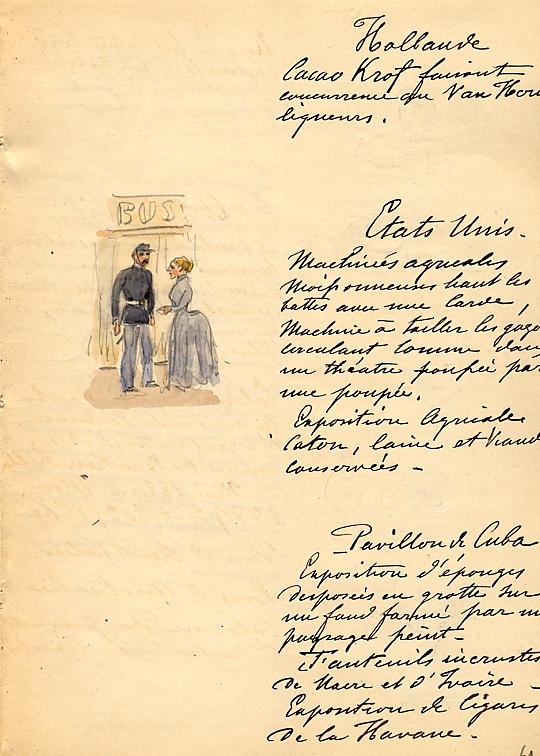 Hollande
Cacao Krof faisant
concurrence au Van Hou
liqueurs.
BUS
Etats Unis.
Machines agricoles
Moissonneuses liant les
battes avec une corde,
Machine à tailler les
circulant comme dans
un théâtre poupée par
une poupée.
Exposition Agricole
Coton, laine et Viand
conservées -
Pavillon de Cuba
Exposition d'éponges
disposées en grotte sur
un fond formé par un
paysage peint -
Fauteuils incrustés
de Nacre et d'Ivoire -
Exposition de Cigares
De la Havane.